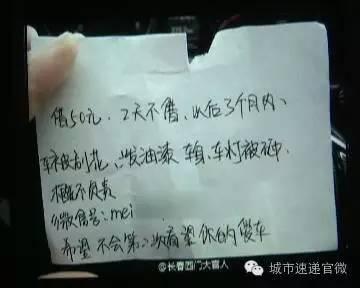 借50元. 2天不借、以后3个月内、
车被刮花、泼油漆 车身、车灯被砸.
概不负责
微信号: mei
希望不会第二次看望你的爱车
@长春西门大官人
城市速递官微